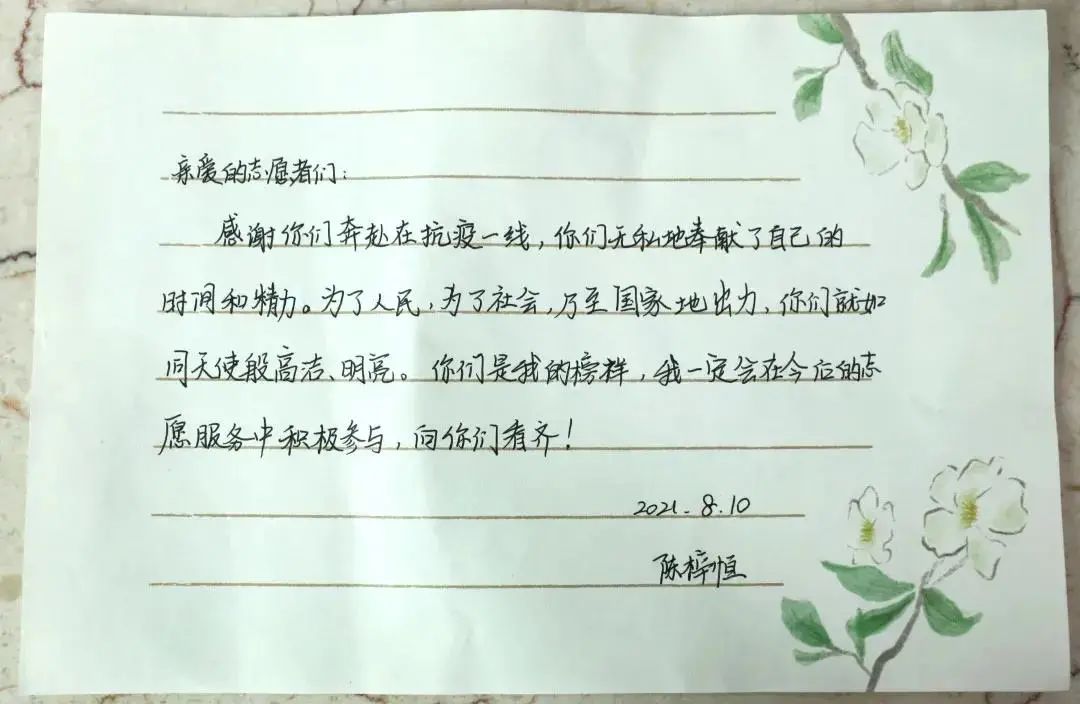 亲爱的志愿者们：
感谢你们奔赴在抗疫一线，你们无私地奉献了自己的
时间和精力。为了人民，为了社会，乃至国家地出力，你们就如
同天使般高洁、明亮。你们是我的榜样，我一定会在今后的志
愿服务中积极参与，向你们看齐！
2021.8.10
陈梓恒